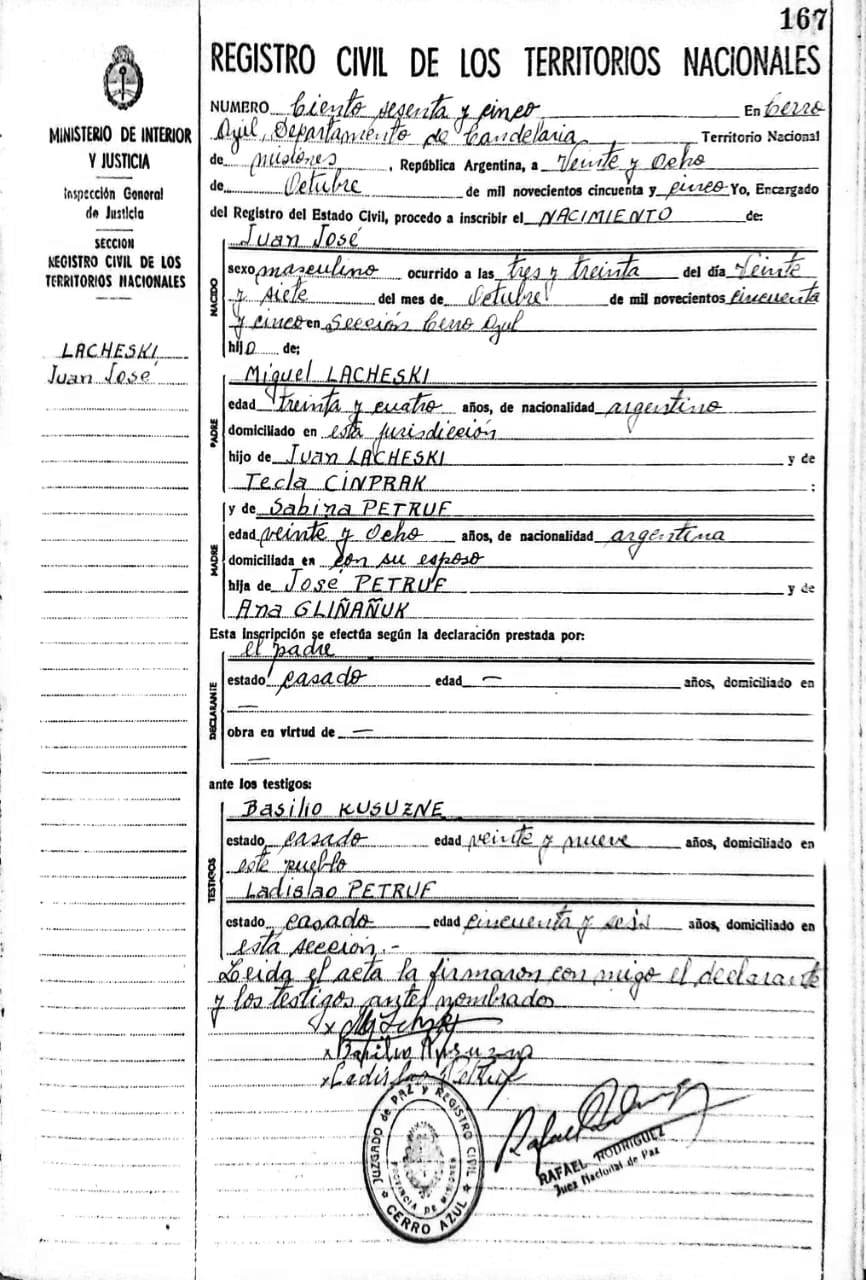 167
REGISTRO CIVIL DE LOS TERRITORIOS NACIONALES
MINISTERIO DE INTERIOR
Y JUSTICIA
Inspección General
de Justicia
SECCION
REGISTRO CIVIL DE LOS
TERRITORIOS NACIONALES
LACHESKI
Juan José
NUMERO Ciento sesenta y cinco En Cerro
Azul, Departamento de Candelaria Territorio Nacional
de misiones, República Argentina, a Veinte y Ocho
de Octubre de mil novecientos cincuenta y cinco Yo, Encargado
del Registro del Estado Civil, procedo a inscribir el NACIMIENTO de:
NACIDO
Juan José
sexo masculino ocurrido a las tres y treinta del día Veinte
y siete del mes de Octubre de mil novecientos cincuenta
y cinco en Sección Cerro Azul
hijo de;
PADRE
Miguel LACHESKI
edad treinta y cuatro años, de nacionalidad argentino
domiciliado en esta jurisdicción
hijo de Juan LACHESKI y de
Tecla CINPRAK ;
MADRE
y de Sabina PETRUF
edad veinte y Ocho años, de nacionalidad argentina
domiciliada en con su esposo
hija de José PETRUF y de
Ana GLIÑAÑUK
Esta Inscripción se efectúa según la declaración prestada por:
DECLARANTE
el padre
estado casado edad — años, domiciliado en
—
obra en virtud de —
—
ante los testigos:
TESTIGOS
Basilio KUSUZNE
estado casado edad veinte y nueve años, domiciliado en
este pueblo
Ladislao PETRUF
estado casado edad cincuenta y seis años, domiciliado en
esta sección.-
Leida el acta la firmaron con migo el declarante
y los testigos antes nombrados
x
x Basilio Kusuzne
x Ladislao Petruf
JUZGADO de PAZ y REGISTRO CIVIL
PROVINCIA DE MISIONES
CERRO AZUL
RAFAEL RODRIGUEZ
Juez Nacional de Paz